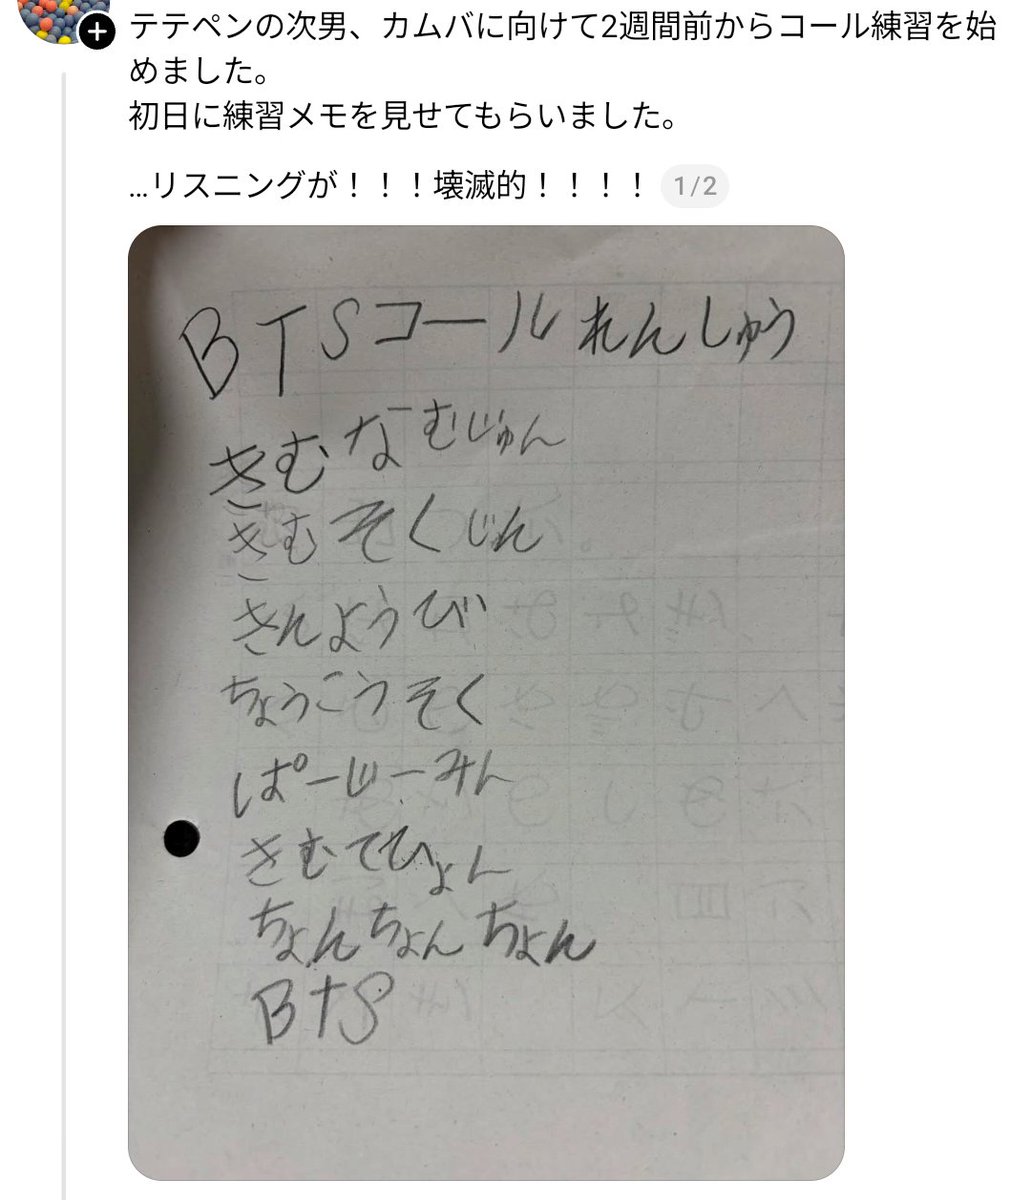 テテペンの次男、カムバに向けて2週間前からコール練習を始
めました。
初日に練習メモを見せてもらいました。
…リスニングが！！！壊滅的！！！！ 1/2
BTSコールれんしゅう
きむなーむじゅん
きむそくじん
きんようび
ちょうこうそく
ぱーじーみん
きむてひょん
ちょんちょんちょん
BTS